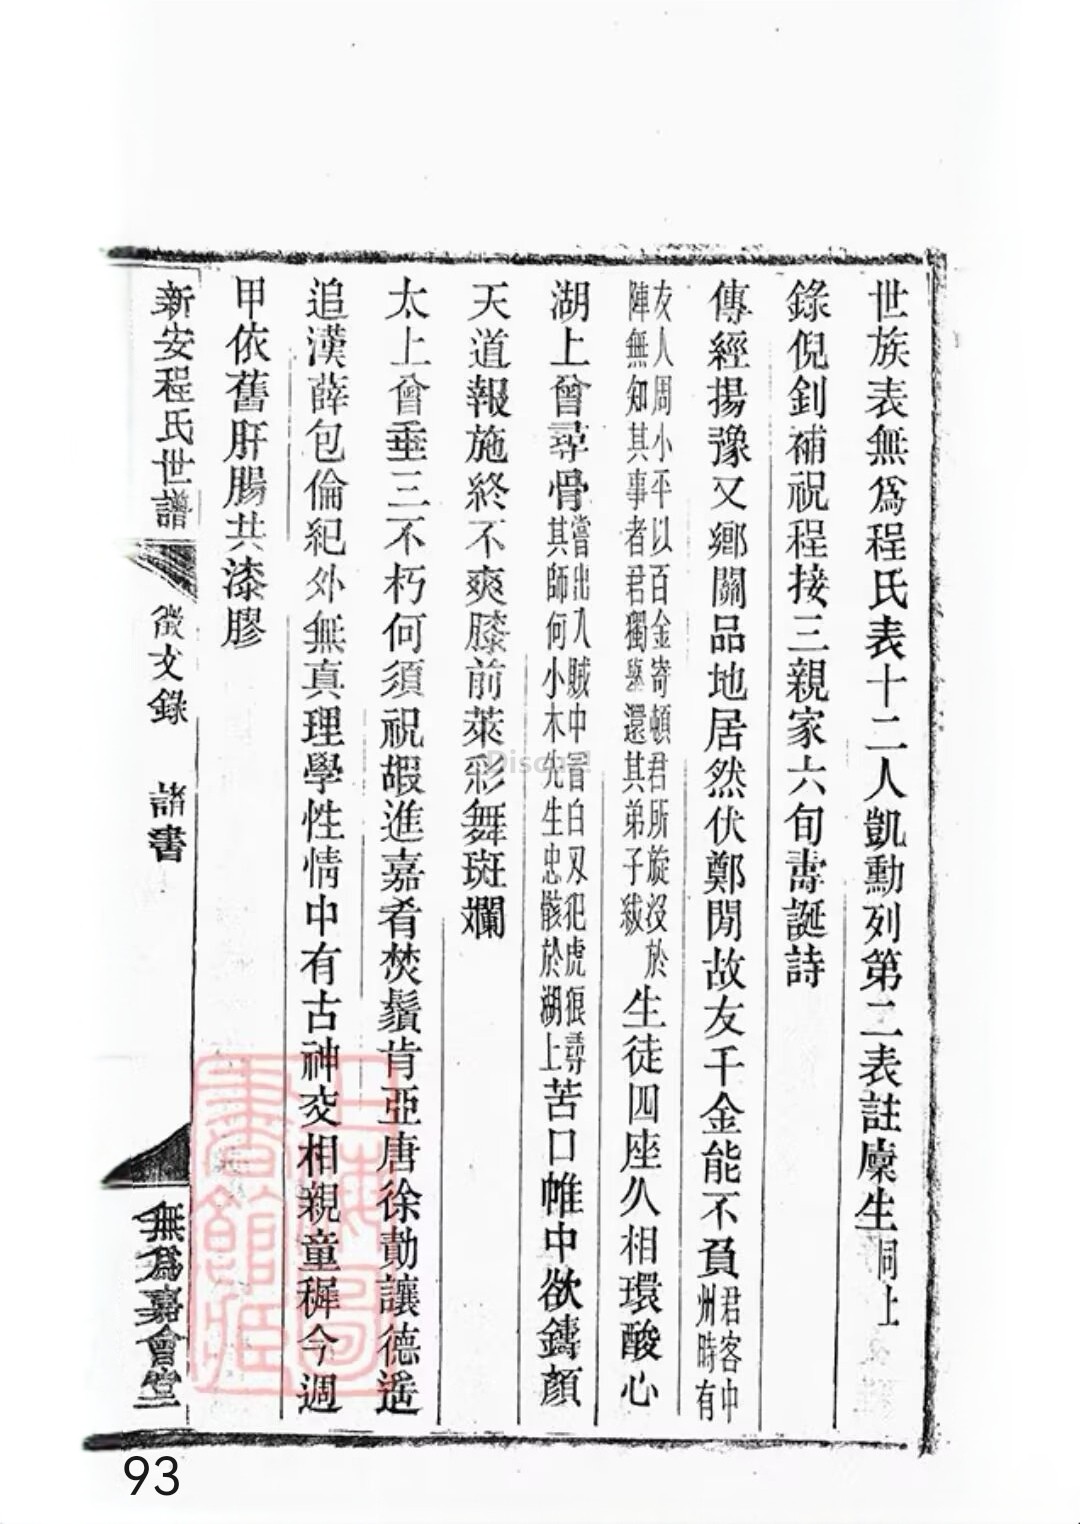 世族表無爲程氏表十二人凱勳列第二表註廩生同上
錄倪釗補祝程接三親家六旬壽誕詩
傳經揚豫又鄉關品地居然伏鄭閒故友千金能不負君客中州時有
友人周小平以百金寄頓君所旋沒於陣無知其事者君獨舉還其弟子紱生徒四座久相環酸心
湖上曾尋骨嘗出入賊中冒白刃犯虎狼尋其師何小木先生忠骸於湖上苦口帷中欲鑄顏
天道報施終不爽膝前萊彩舞斑斕
太上曾垂三不朽何須祝嘏進嘉肴焚鬚肯亞唐徐勣讓德遙
追漢薛包倫紀外無真理學性情中有古神交相親童穉今週
甲依舊肝腸共漆膠
新安程氏世譜 徵文錄 諸書 無爲嘉會堂
上海圖書館藏
93